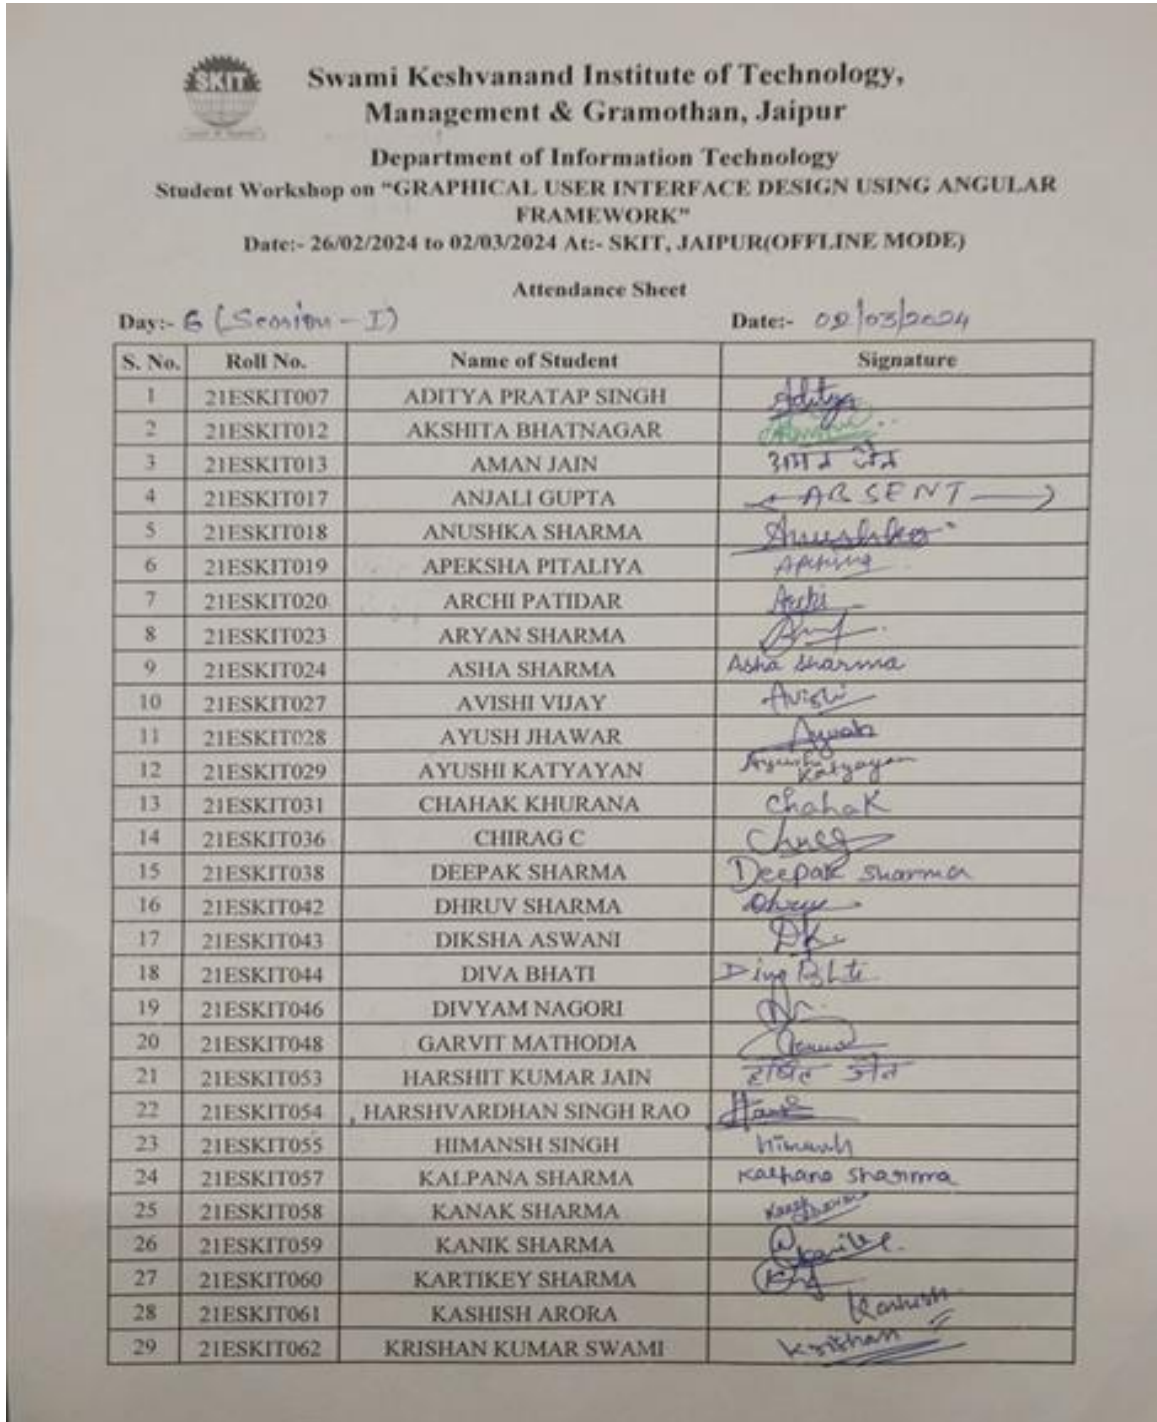 SKIT
Swami Keshvanand Institute of Technology,
Management & Gramothan, Jaipur
Department of Information Technology
Student Workshop on "GRAPHICAL USER INTERFACE DESIGN USING ANGULAR
FRAMEWORK"
Date:- 26/02/2024 to 02/03/2024 At:- SKIT, JAIPUR(OFFLINE MODE)
Attendance Sheet
Day:- 6 (Session - I) Date:- 02/03/2024
S. No. Roll No. Name of Student Signature
1 21ESKIT007 ADITYA PRATAP SINGH Aditya
2 21ESKIT012 AKSHITA BHATNAGAR
3 21ESKIT013 AMAN JAIN अमन जैन
4 21ESKIT017 ANJALI GUPTA ABSENT
5 21ESKIT018 ANUSHKA SHARMA Anushka
6 21ESKIT019 APEKSHA PITALIYA
7 21ESKIT020 ARCHI PATIDAR Archi
8 21ESKIT023 ARYAN SHARMA
9 21ESKIT024 ASHA SHARMA Asha Sharma
10 21ESKIT027 AVISHI VIJAY Avishi
11 21ESKIT028 AYUSH JHAWAR Ayush
12 21ESKIT029 AYUSHI KATYAYAN Ayushi Katyayan
13 21ESKIT031 CHAHAK KHURANA Chahak
14 21ESKIT036 CHIRAG C
15 21ESKIT038 DEEPAK SHARMA Deepak Sharma
16 21ESKIT042 DHRUV SHARMA Dhruv
17 21ESKIT043 DIKSHA ASWANI DK
18 21ESKIT044 DIVA BHATI
19 21ESKIT046 DIVYAM NAGORI
20 21ESKIT048 GARVIT MATHODIA
21 21ESKIT053 HARSHIT KUMAR JAIN हर्षित जैन
22 21ESKIT054 HARSHVARDHAN SINGH RAO
23 21ESKIT055 HIMANSH SINGH Himansh
24 21ESKIT057 KALPANA SHARMA Kalpana Sharma
25 21ESKIT058 KANAK SHARMA Kanak Sharma
26 21ESKIT059 KANIK SHARMA Kanik
27 21ESKIT060 KARTIKEY SHARMA
28 21ESKIT061 KASHISH ARORA Kashish
29 21ESKIT062 KRISHAN KUMAR SWAMI Krishan